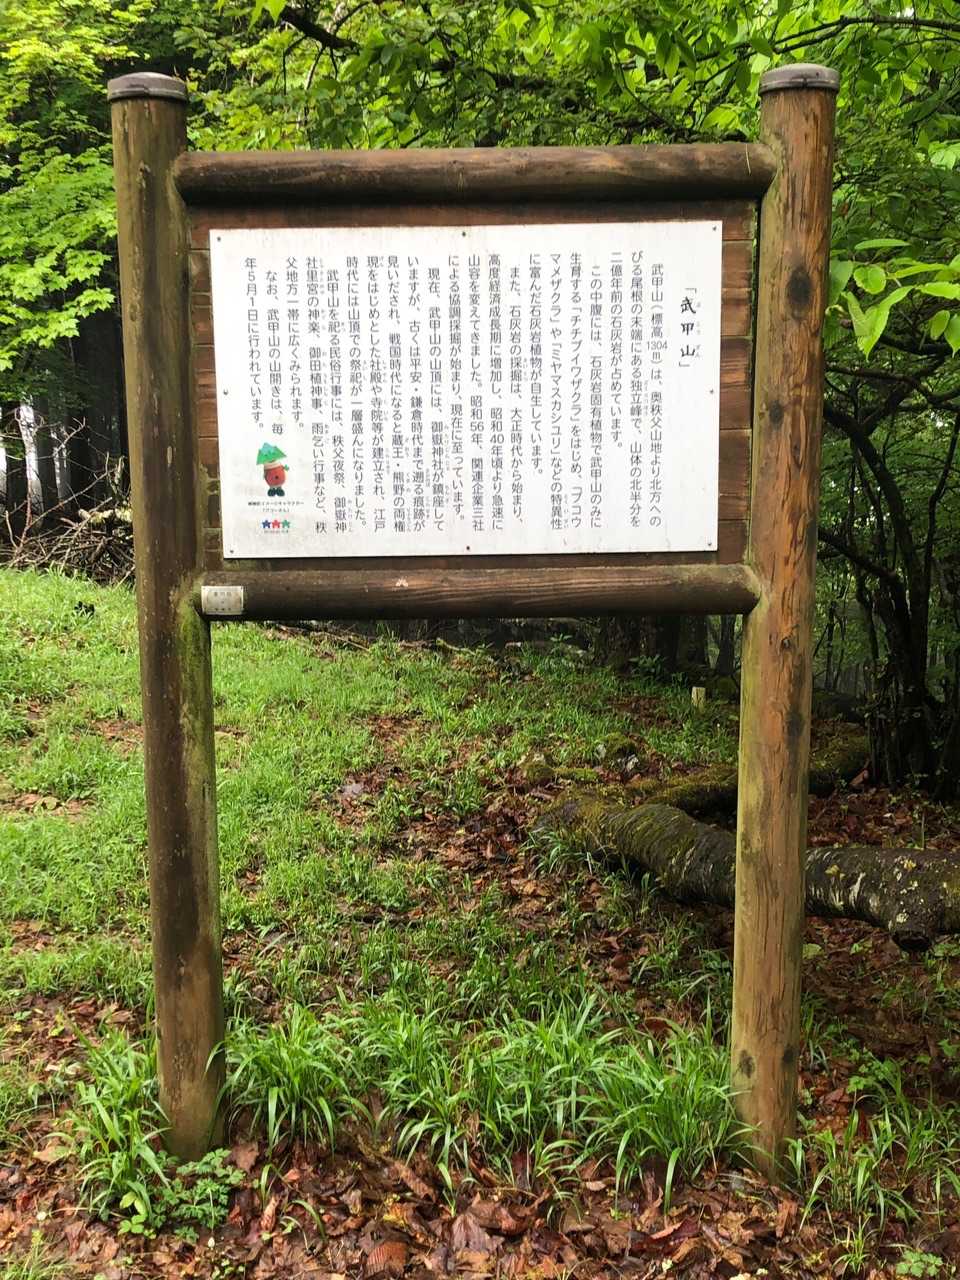 「武甲山」
武甲山（標高1304m）は、奥秩父山地より北方への
びる尾根の末端にある独立峰で、山体の北半分を
二億年前の石灰岩が占めています。
この中腹には、石灰岩固有植物で武甲山のみに
生育する「チチブイワザクラ」をはじめ、「ブコウ
マメザクラ」や「ミヤマスカシユリ」などの特異性
に富んだ石灰岩植物が自生しています。
また、石灰岩の採掘は、大正時代から始まり、
高度経済成長期に増加し、昭和40年頃より急速に
山容を変えてきました。昭和56年、関連企業三社
による協調採掘が始まり、現在に至っています。
現在、武甲山の山頂には、御嶽神社が鎮座して
いますが、古くは平安・鎌倉時代まで遡る痕跡が
見いだされ、戦国時代になると蔵王・熊野の両権
現をはじめとした社殿や寺院等が建立され、江戸
時代には山頂での祭祀が一層盛んになりました。
武甲山を祀る民俗行事には、秩父夜祭、御嶽神
社里宮の神楽、御田植神事、雨乞い行事など、秩
父地方一帯に広くみられます。
なお、武甲山の山開きは、毎
年5月1日に行われています。